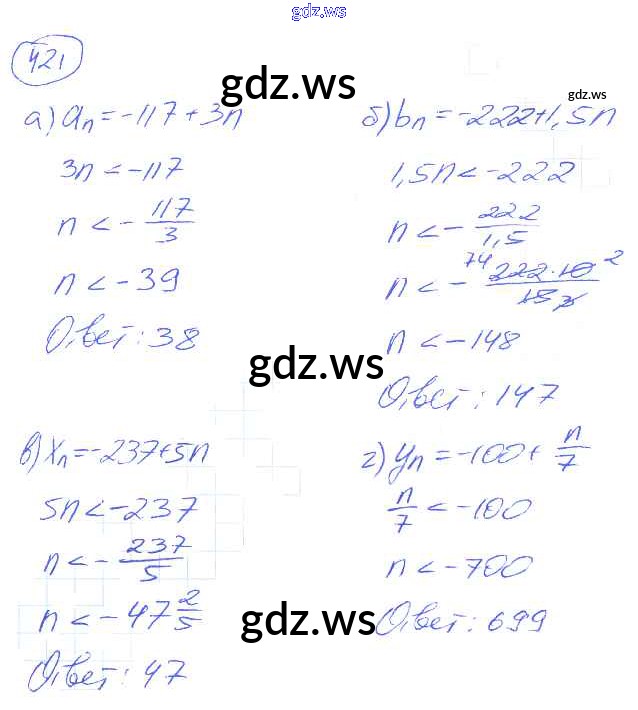 gdz.ws
421
gdz.ws
gdz.ws
а) aₙ = -117 + 3n
3n < -117
n < - 117/3
n < -39
Ответ: 38
б) bₙ = -222 + 1,5n
1,5n < -222
n < - 222/1,5
74 2
n < - 222·10/15 3
n < -148
Ответ: 147
gdz.ws
в) xₙ = -237 + 5n
5n < -237
n < - 237/5
n < -47 2/5
Ответ: 47
г) yₙ = -100 + n/7
n/7 < -100
n < -700
Ответ: 699
gdz.ws